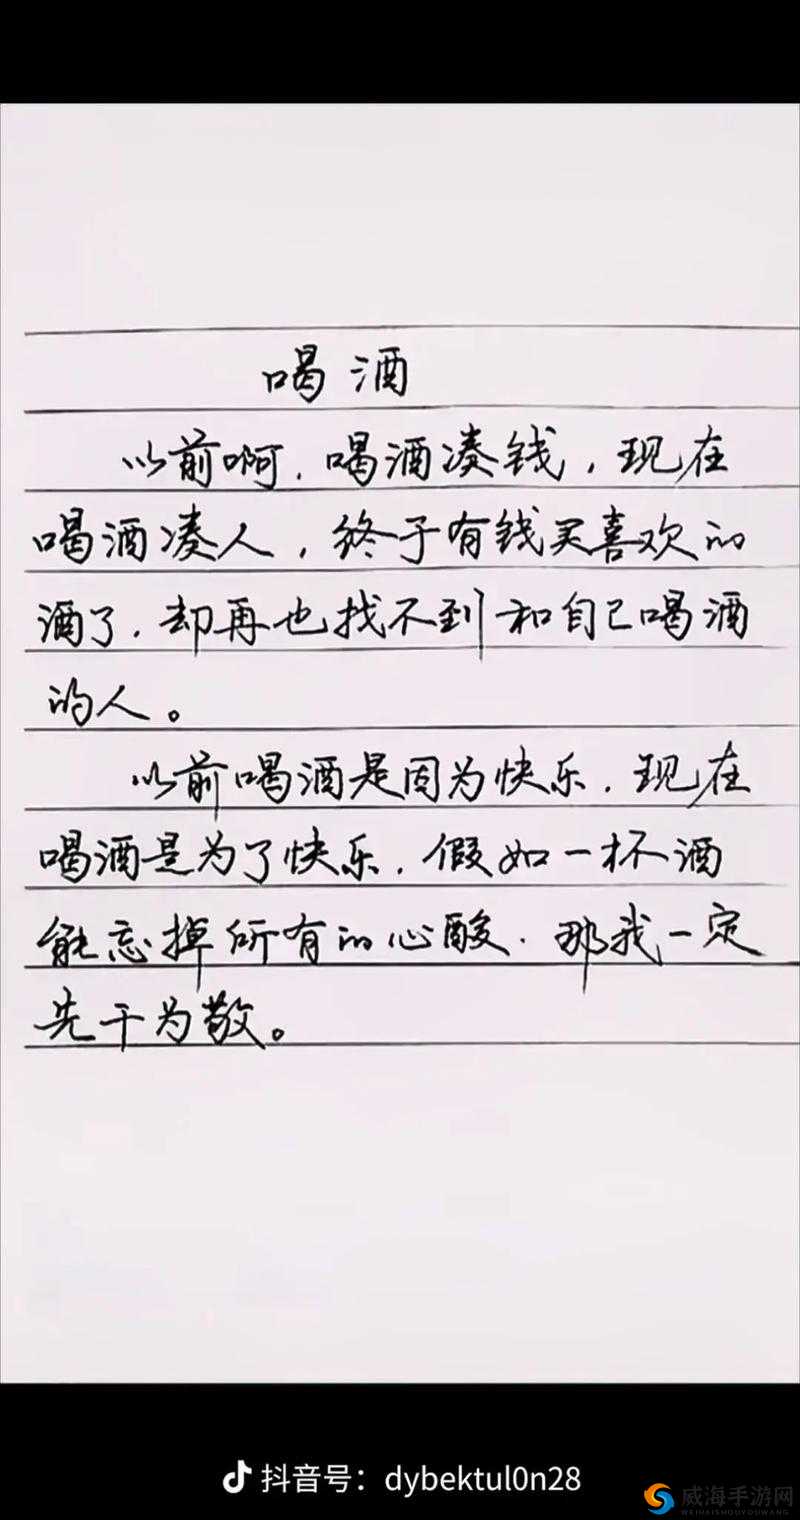 喝酒
以前啊，喝酒凑钱，现在
喝酒凑人，终于有钱买喜欢的
酒了，却再也找不到和自己喝酒
的人。
以前喝酒是因为快乐，现在
喝酒是为了快乐，假如一杯酒
能忘掉所有的心酸，那我一定
先干为敬。
抖音号：dybektul0n28
威海手游网
WEIHAISHOUYOUWANG